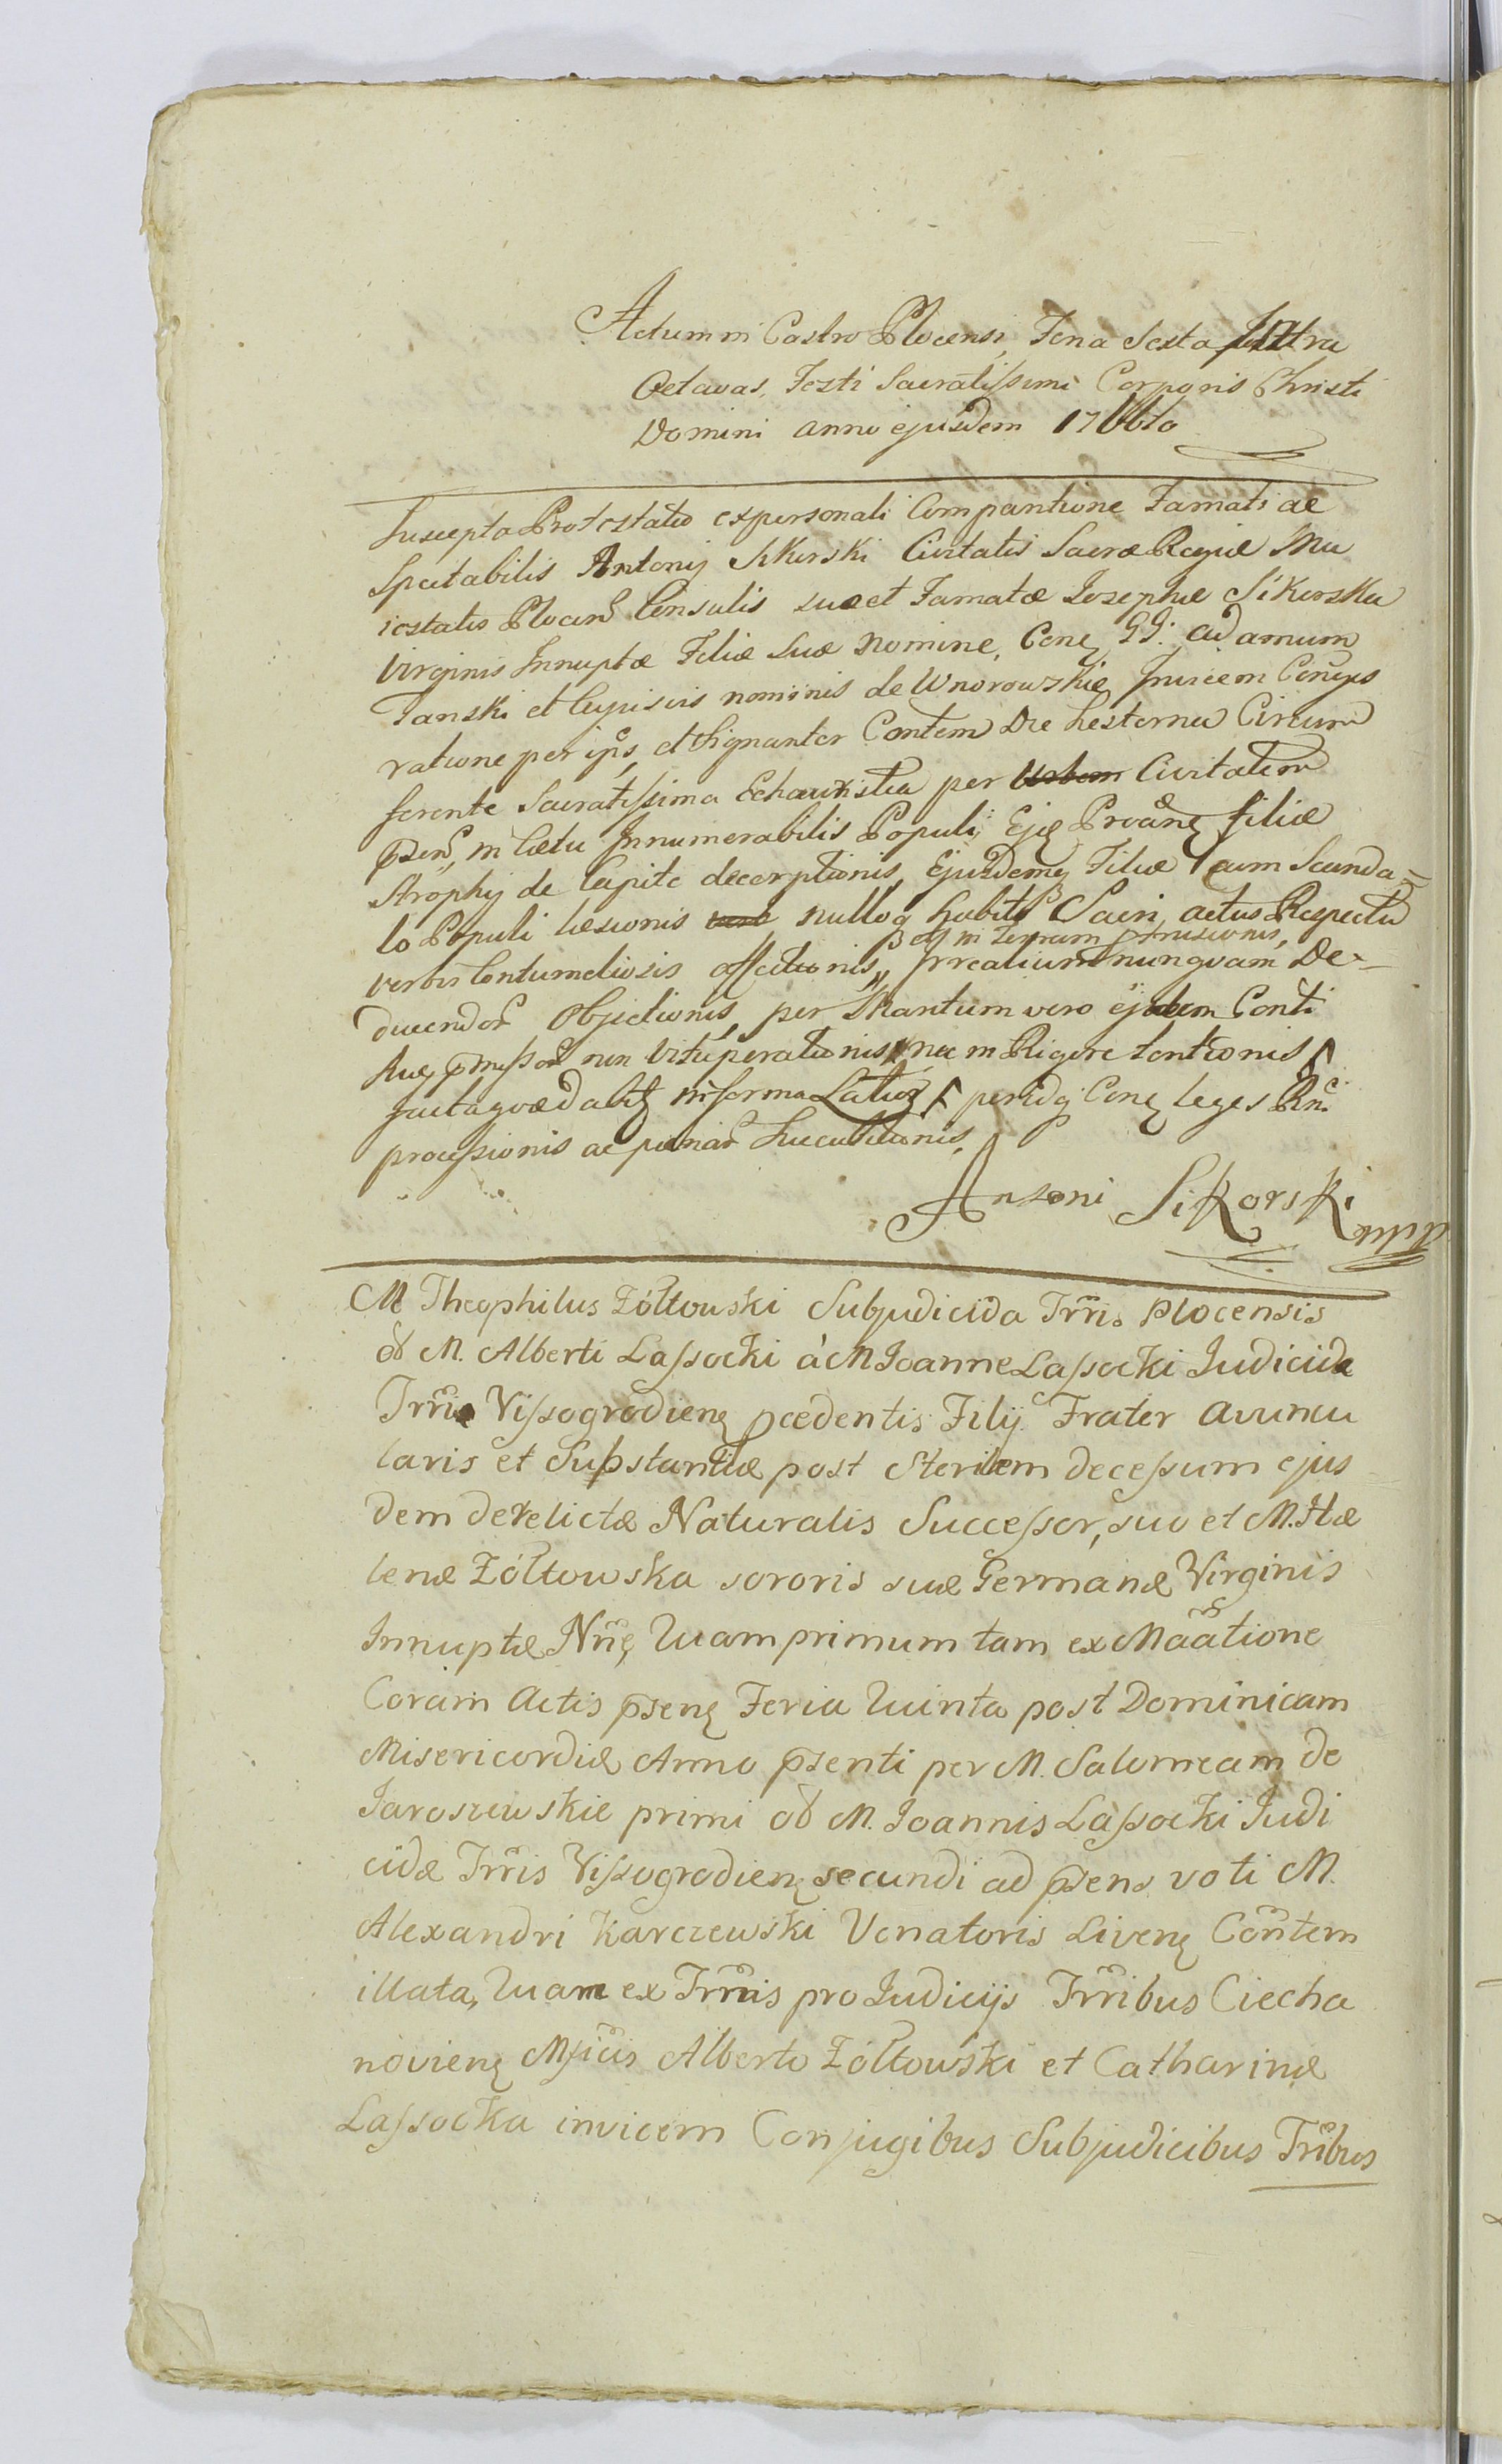 Actum in Castro Plocensi, Feria Sexta Intra
Octavas, Festi Sacratissimi Corporis Christi
Domini anno ejusdem
Suscepta Protestatio ex personali Comparitione Famati ac
Spectabilis Antonij Sikorski Civitatis Sacræ Regiæ Ma
iestatis Plocen Consulis suo et Famatæ Josephæ Sikorska
Virginis Innuptæ Filiæ suæ Nomine, Con GG. Adamum
Tanski et nominis de Wnorowskie Invicem Conjges
ratione per ips, et signanter Contem Die hesterna Circum
ferente Sacratissima Echaristia per Civitatem
psen, in Cœtu Innumerabilis Populi, Ejq filiæ
Strophij de Capite decerptionis, Ejusdemq Filiæ cum Scanda=
lo Populi læsionis nulloq habito Sacri, actus Respectu
etq in Terram
verbis Contumeliosis affectionis, Irrealium nunquam De=
ducendor Objectionis, per vero Conti
non Vituperationis, nec in Rigore tentionis
in forma Latior, peridq Con leges Rni
processionis ac pœnar Succubitionis,
Antoni Sikorski mpp
M Theophilus Żółtowski Subjudicida Trris Plocensis
ol M. Alberti Lassocki à M Joanne Lassocki Judicida
Trris Vissogrodien pcedentis Filij Frater avuncu
laris et Substantiæ post Sterilem decessum ejus
dem derelictæ Naturalis Successor, suo et M. Hæ
lenæ Żółtowska sororis suæ Germanæ Virginis
Innuptæ Nne, Quam primum tam ex Maatione
Coram Actis psen Feria Quinta post Dominicam
Misericordiæ Anno psenti per M. Salomeam de
Jaroszewskie primi ol M. Joannis Lassocki Judi
cidæ Trris Vissogrodien secundi ad psens voti M.
Alexandri Karczewski Venatoris Liven Contem
illata, Quam ex Trmis pro Judicijs Trribus Ciecha
novien Mficis Alberto Żółtowski et Catharinæ
Lassocka invicem Conjugibus Subjudicibus Tribus